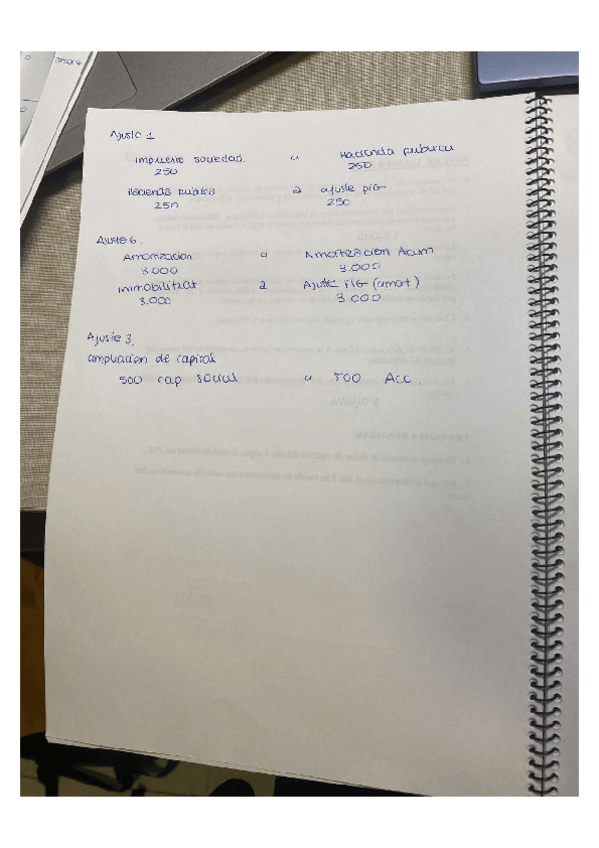 Ajuste 1
Impuesto sociedad. a Hacienda publica
250 250
Hacienda publica a ajuste pig
250 250
Ajuste 6.
Amortizacion a Amortizacion Acum
3.000 3.000
Immobilitzat a Ajuste PIG (amort)
3.000 3.000
Ajuste 3.
ampliacion de capital
500 cap social a 500 Acc.